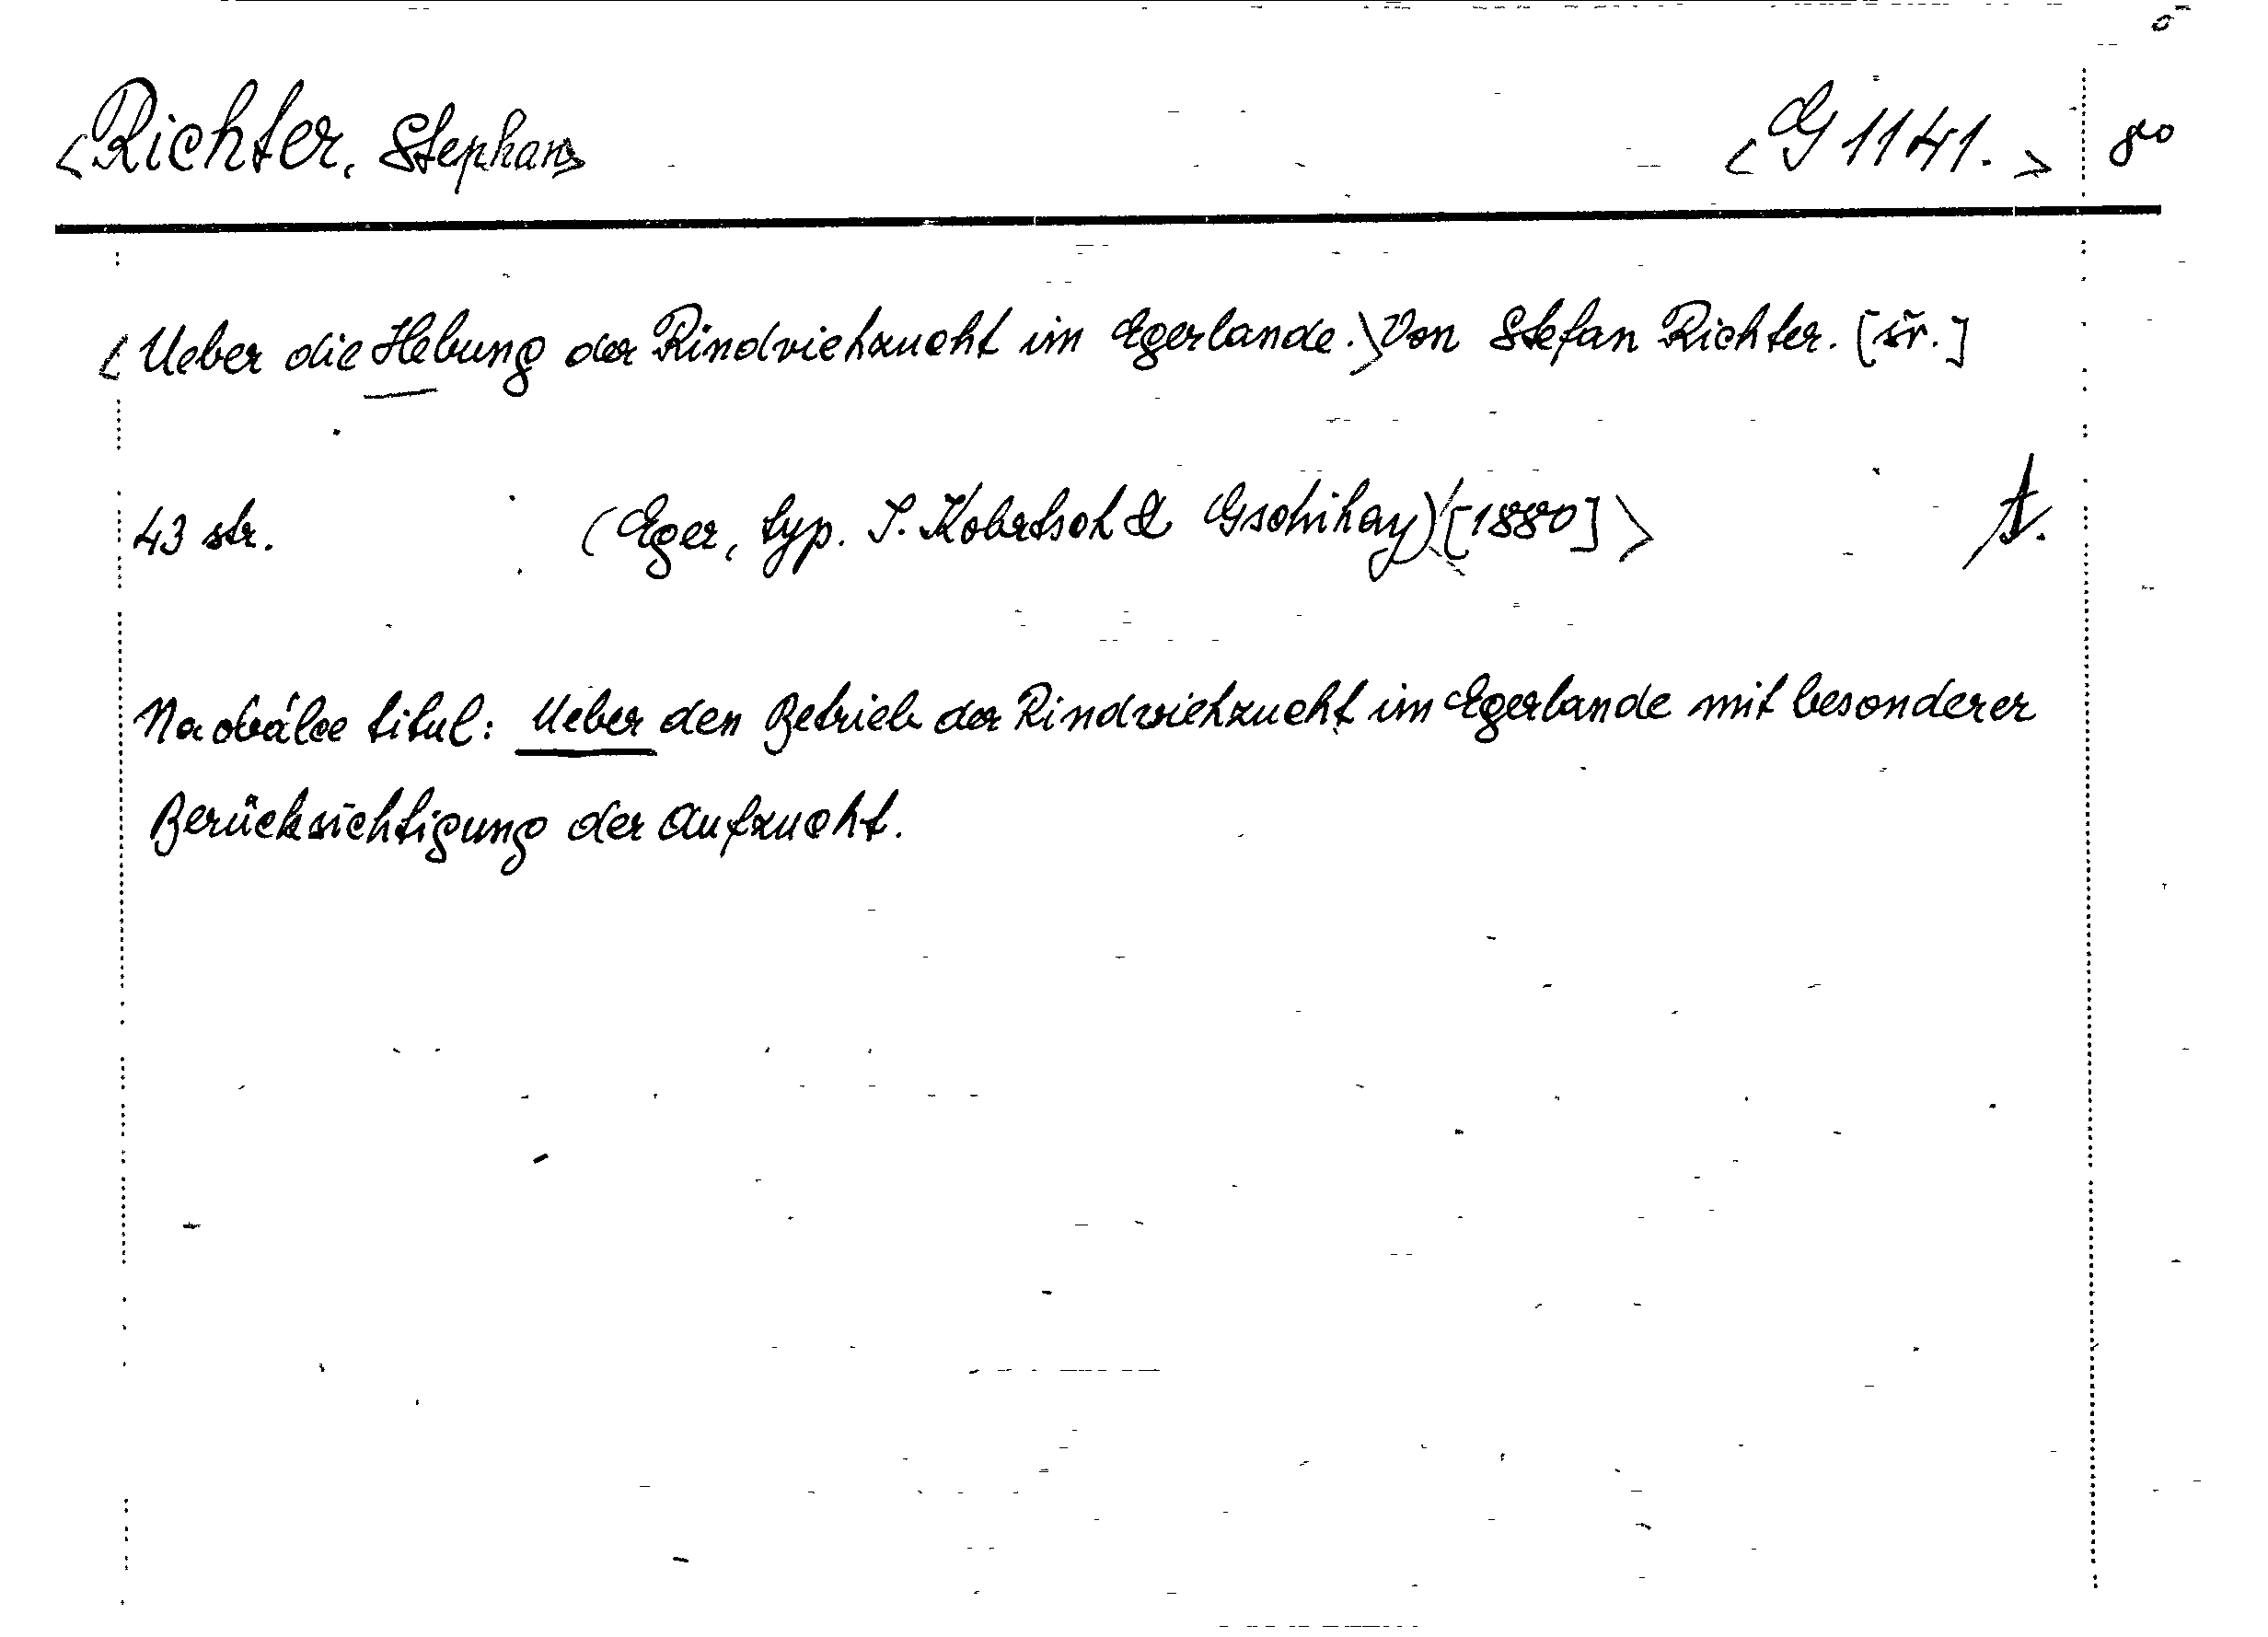 <Richter, Stephan> <G 1141.> 8°
<Ueber die Hebung der Rindviehzucht im Egerlande.> Von Stefan Richter. [sr.]
43 str. (Eger, typ. J. Kobrtsch & Gschihay) [1880]> A.
Na obálce titul: Ueber den Betrieb der Rindviehzucht im Egerlande mit besonderer
Berücksichtigung der Aufzucht.